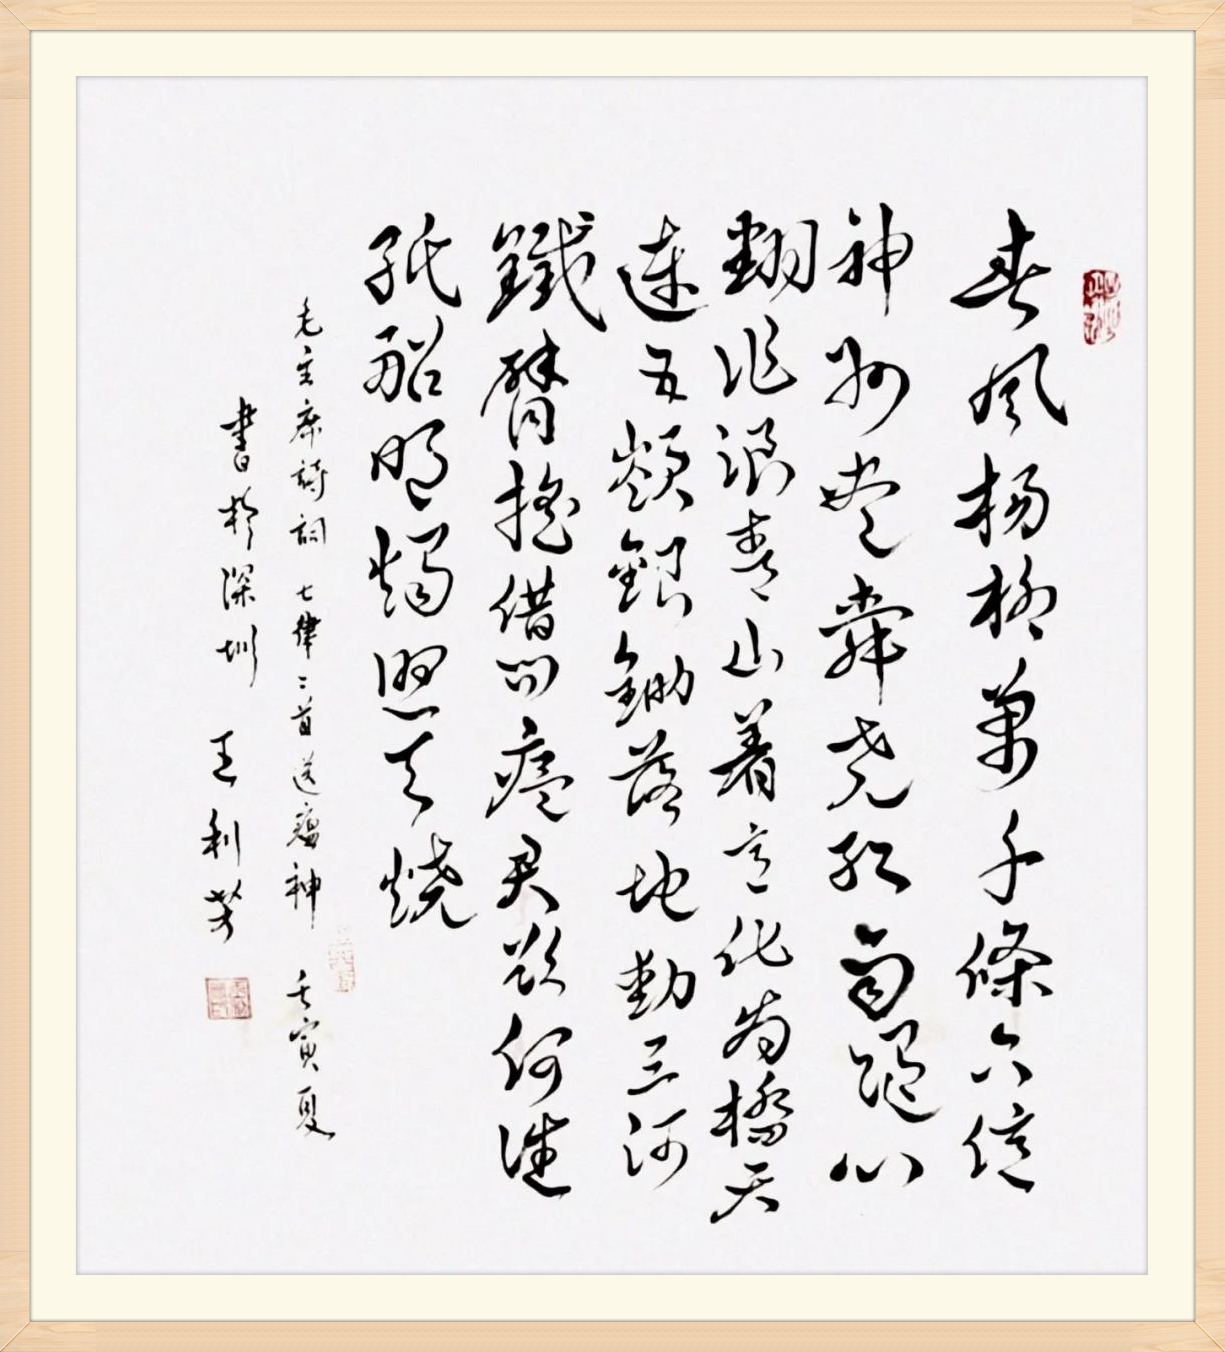 春風楊柳萬千條六億
神州盡舜尧紅雨隨心
翻作浪青山着意化為橋天
連五嶺銀鋤落地動三河
鐵臂搖借問瘟君欲何
紙船明燭照天燒
毛主席詩詞 七律二首送瘟神 壬寅夏
書於深圳 王利芳